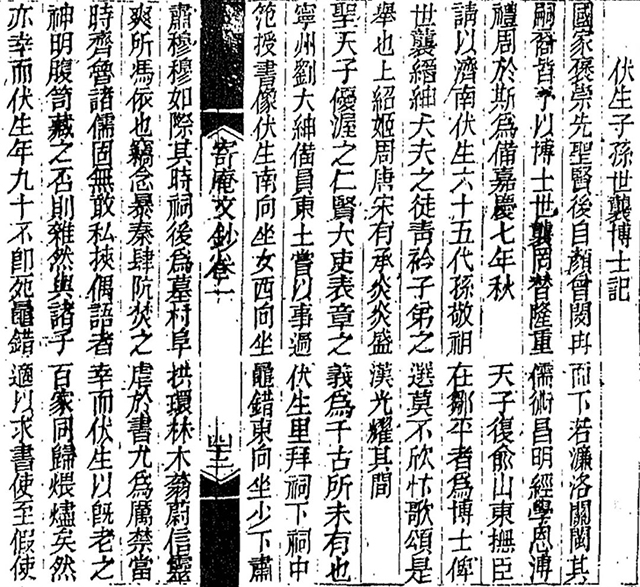 伏生子孫世襲博士記
國家褒崇先聖賢後自顏曾閔冉而下若濂洛關閩其
嗣裔皆予以博士世襲罔替隆重儒術昌明經學恩溥
禮周於斯爲備嘉慶七年秋天子復俞山東撫臣
請以濟南伏生六十五代孫敬祖在鄒平者爲博士俾
世襲縉紳大夫之徒靑衿子弟之選莫不欣忭歌頌是
舉也上紹姬周唐宋有承炎炎盛漢光耀其間
聖天子優渥之仁賢大吏表章之義爲千古所未有也
寧州劉大紳備員東土嘗以事過伏生里拜祠下祠中
范授書像伏生南向坐女西向坐鼂錯東向坐少下肅
寄庵文鈔卷一
肅穆穆如際其時祠後爲墓村阜拱環林木蓊蔚信靈
爽所馮依也竊念暴秦肆阬焚之虐於書尤爲厲禁當
時齊魯諸儒固無敢私挾偶語者幸而伏生以旣老之
神明腹笥藏之否則雜然與諸子百家同歸煨燼矣然
亦幸而伏生年九十不卽死鼂錯適以求書使至假使